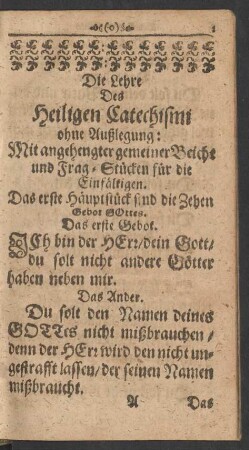 (o) 1
Die Lehre
Des
Heiligen Catechismi
ohne Außlegung:
Mit angehengter gemeiner Beicht
und Frag-Stücken für die
Einfältigen.
Das erste Häuptstück sind die Zehen
Gebot GOttes.
Das erste Gebot.
ICh bin der HErr/ dein Gott/
du solt nicht andere Götter
haben neben mir.
Das Ander.
Du solt den Namen deines
GOTTes nicht mißbrauchen/
denn der HErr wird den nicht un-
gestrafft lassen/ der seinen Namen
mißbraucht.
A Das